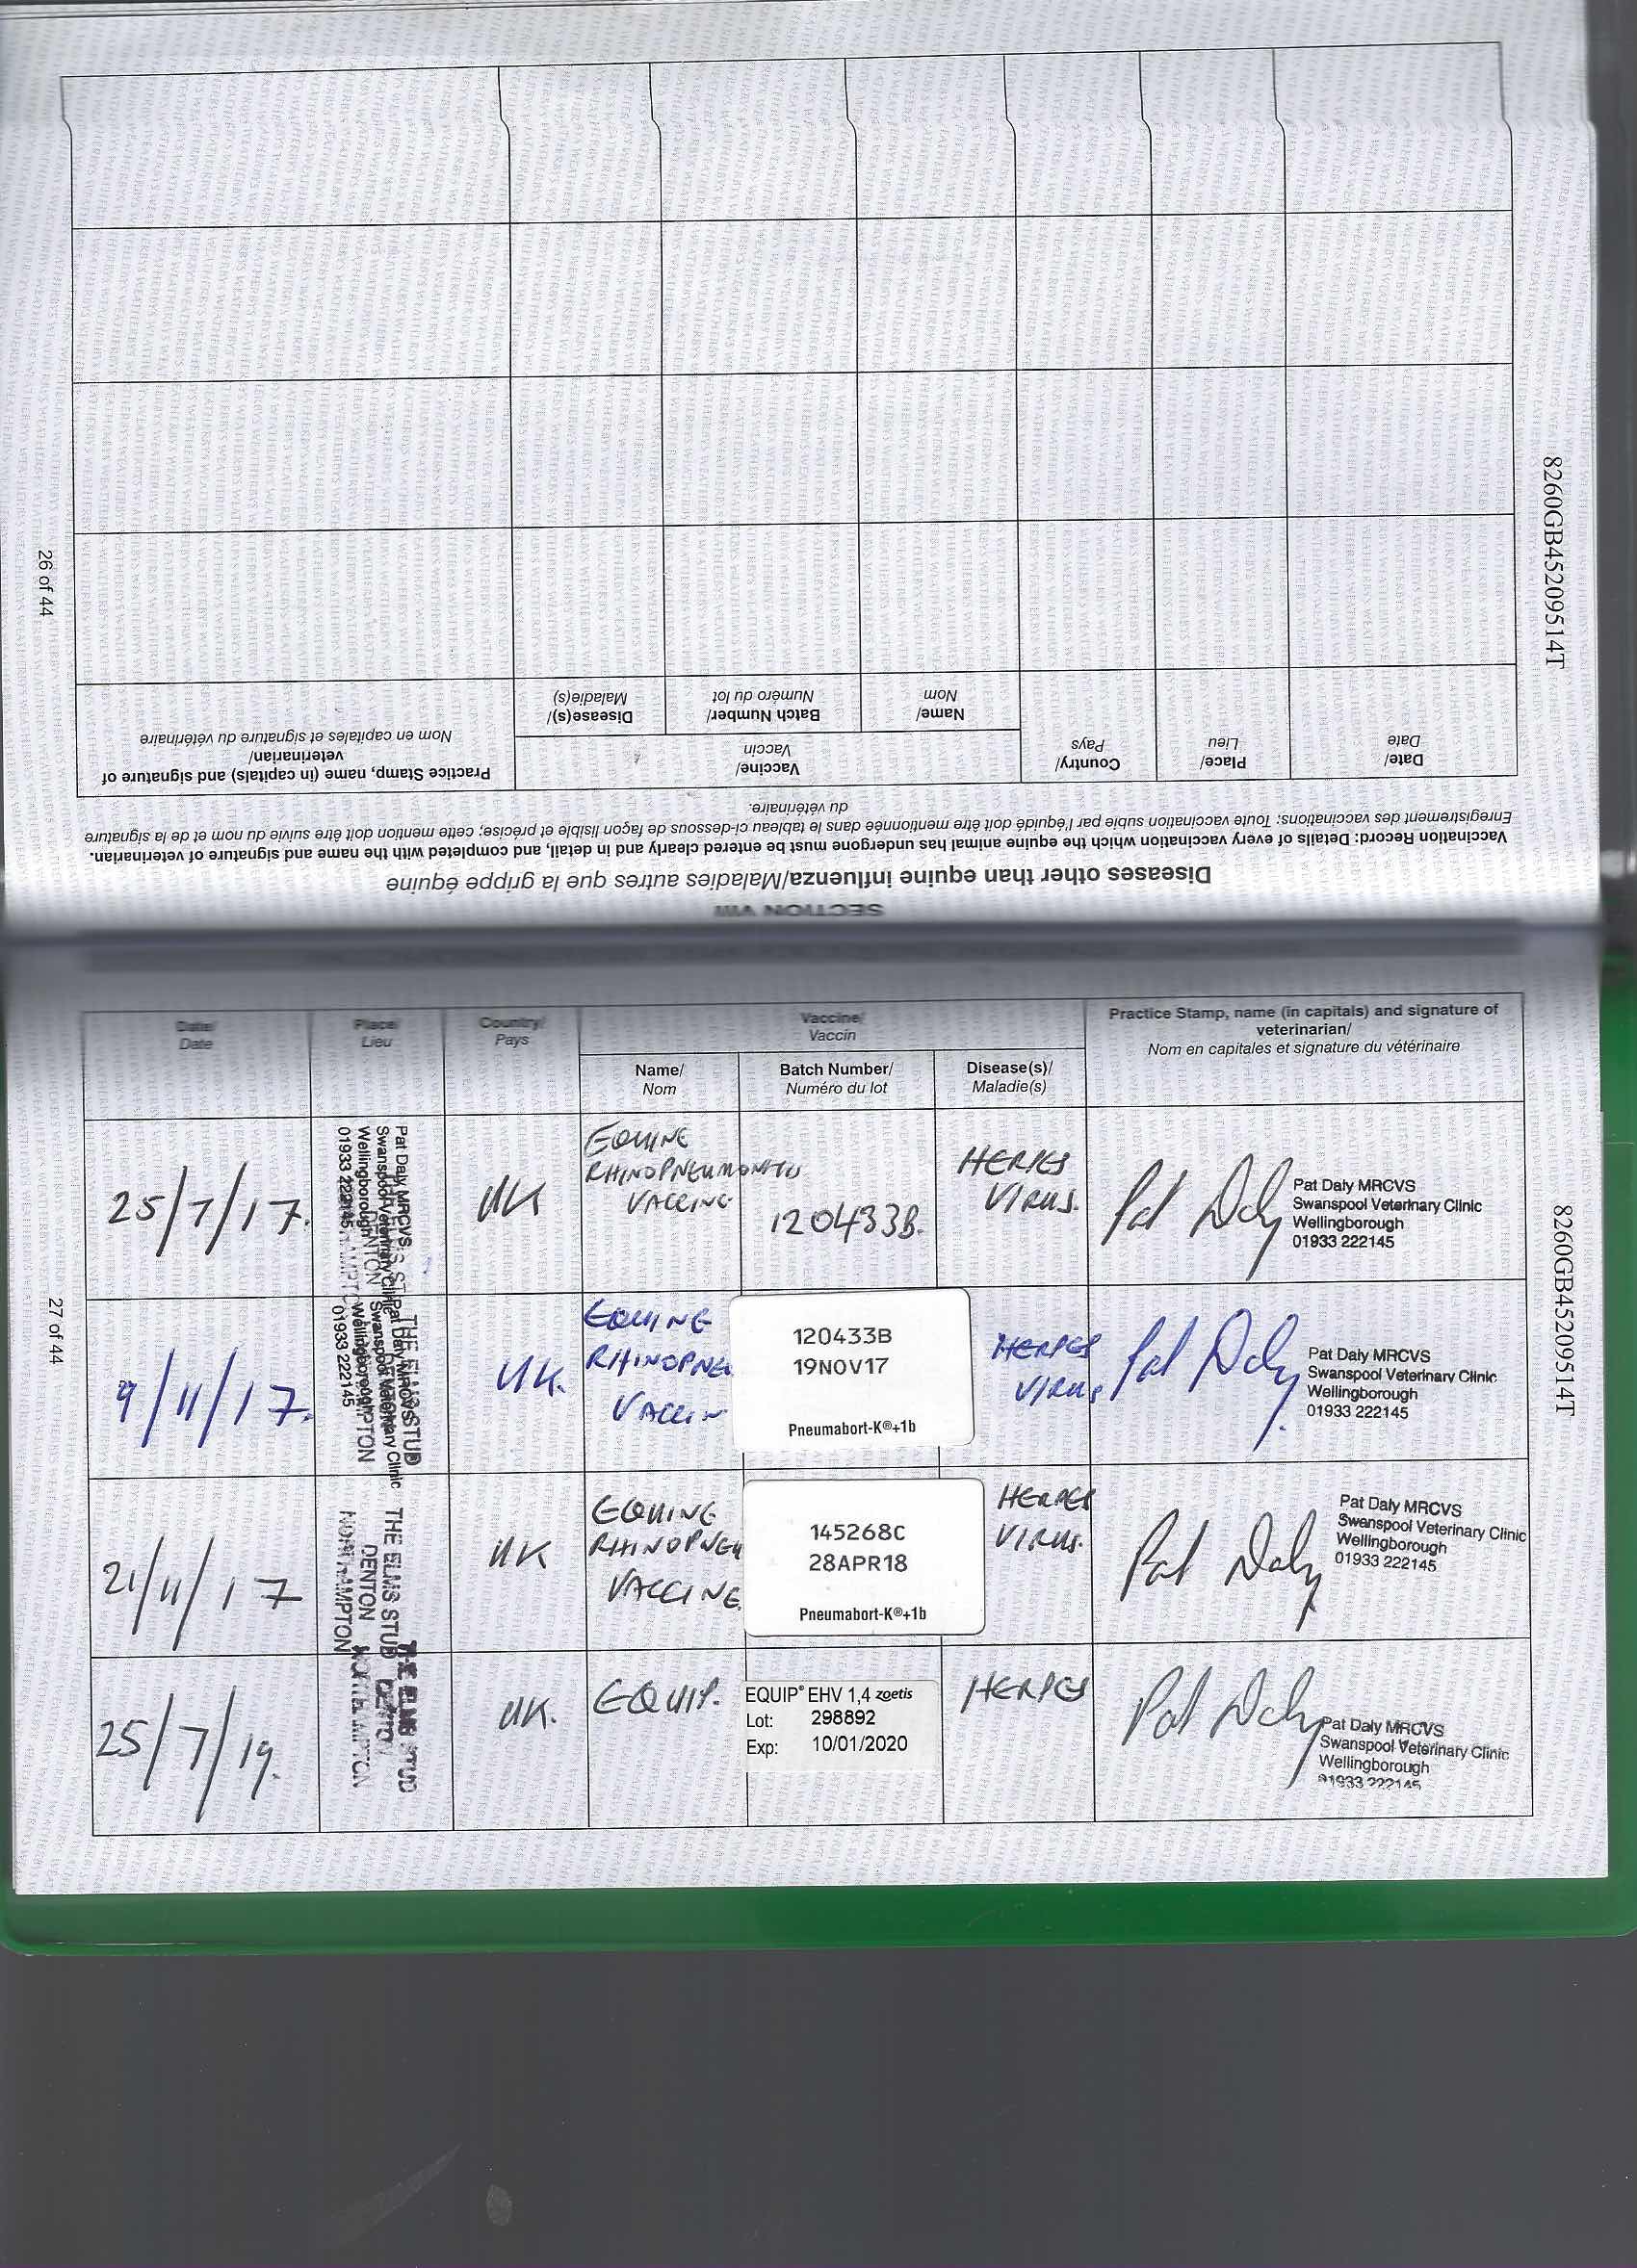 SECTION VIII
Diseases other than equine influenza/Maladies autres que la grippe équine
Vaccination Record: Details of every vaccination which the equine animal has undergone must be entered clearly and in detail, and completed with the name and signature of veterinarian.
Enregistrement des vaccinations: Toute vaccination subie par l'équidé doit être mentionnée dans le tableau ci-dessous de façon lisible et précise; cette mention doit être suivie du nom et de la signature
du vétérinaire.
Date/
Date
Place/
Lieu
Country/
Pays
Vaccine/
Vaccin
Name/
Nom
Batch Number/
Numéro du lot
Disease(s)/
Maladie(s)
Practice Stamp, name (in capitals) and signature of
veterinarian/
Nom en capitales et signature du vétérinaire
26 of 44
8260GB45209514T
Date/
Date
Place/
Lieu
Country/
Pays
Vaccine/
Vaccin
Name/
Nom
Batch Number/
Numéro du lot
Disease(s)/
Maladie(s)
Practice Stamp, name (in capitals) and signature of
veterinarian/
Nom en capitales et signature du vétérinaire
25/7/17.
Pat Daly MRCVS
Swanspool Veterinary Clinic
Wellingborough
01933 222145
UK
EQUINE
RHINOPNEUMONITIS
VACCINE
120433B.
HERPES
VIRUS.
Pat Daly
Pat Daly MRCVS
Swanspool Veterinary Clinic
Wellingborough
01933 222145
9/11/17.
THE ELMS STUD
Pat Daly MRCVS
Swanspool Veterinary Clinic
Wellingborough
01933 222145
UK.
EQUINE
RHINOPNE
VACCIN
120433B
19NOV17
Pneumabort-K®+1b
HERPES
VIRUS
Pat Daly
Pat Daly MRCVS
Swanspool Veterinary Clinic
Wellingborough
01933 222145
21/11/17
THE ELMS STUD
DENTON
NORTHAMPTON
UK
EQUINE
RHINOPNEU
VACCINE
145268C
28APR18
Pneumabort-K®+1b
HERPES
VIRUS.
Pat Daly
Pat Daly MRCVS
Swanspool Veterinary Clinic
Wellingborough
01933 222145
25/7/19.
THE ELMS STUD
DENTON
NORTHAMPTON
UK.
EQUIP.
EQUIP® EHV 1,4 zoetis
Lot: 298892
Exp: 10/01/2020
HERPES
Pat Daly
Pat Daly MRCVS
Swanspool Veterinary Clinic
Wellingborough
01933 222145
27 of 44
8260GB45209514T